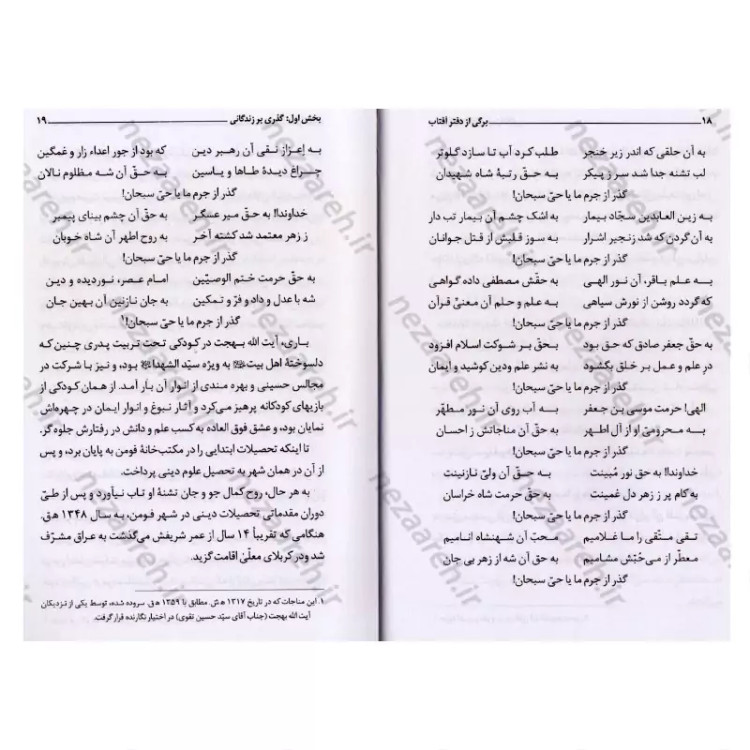 ۱۸ برگی از دفتر آفتاب
به آن حلقی که اندر زیر خنجر طلب کرد آب تا سازد گلوتر
لب تشنه جدا شد سر ز پیکر به حق رتبهٔ شاه شهیدان
گذر از جرم ما یا حیّ سبحان!
به زین العابدین سجّاد بیمار به اشک چشم آن بیمار تب دار
به آن گردن که شد زنجیر اشرار به سوز قلبش از قتل جوانان
گذر از جرم ما یا حیّ سبحان!
به علم باقر، آن نور الهی به حقّش مصطفی داده گواهی
که گردد روشن از نورش سیاهی به علم و حلم آن معنیّ قرآن
گذر از جرم ما یا حیّ سبحان!
به حق جعفر صادق که حق بود بحق بر شوکت اسلام افزود
در علم و عمل بر خلق بگشود به نشر علم ودین کوشید و ایمان
گذر از جرم ما یا حیّ سبحان!
الهی! حرمت موسی بن جعفر به آب روی آن نور مطهّر
به محرومی او از آل اطهر به حق آن مناجاتش ز احسان
گذر از جرم ما یا حیّ سبحان!
خداوندا! به حق نور مُبینت به حق آن ولیّ نازنینت
به کام پر ز زهر دل غمینت به حق حرمت شاه خراسان
گذر از جرم ما یا حیّ سبحان!
تقی متّقی را ما غلامیم محبّ آن شهنشاه انامیم
معطّر از می حُبّش مشامیم به حق آن شه از زهر بی جان
گذر از جرم ما یا حیّ سبحان!
بخش اول: گذری بر زندگانی ۱۹
به اعزاز نقی آن رهبر دین که بود از جور اعداء زار و غمگین
چراغ دیدهٔ طاها و یاسین به حق آن شه مظلوم نالان
گذر از جرم ما یا حیّ سبحان!
خداوندا! به حق میر عسگر به حق آن چشم بینای پیمبر
ز زهر معتمد شد کشته آخر به روح اطهر آن شاه خوبان
گذر از جرم ما یا حیّ سبحان!
به حق حرمت ختم الوصیّین امام عصر، نوردیده و دین
شه با عدل و داد و فرّ و تمکین به جان نازنین آن بهین جان
گذر از جرم ما یا حیّ سبحان!
باری، آیت الله بهجت در کودکی تحت تربیت پدری چنین که
دلسوختهٔ اهل بیت به ویژه سیّد الشهدا بود، و نیز با شرکت در
مجالس حسینی و بهره مندی از انوار آن بار آمد. از همان کودکی از
بازیهای کودکانه پرهیز می‌کرد و آثار نبوغ و انوار ایمان در چهره‌اش
نمایان بود، و عشق فوق العاده به کسب علم و دانش در رفتارش جلوه گر.
تا اینکه تحصیلات ابتدایی را در مکتب‌خانهٔ فومن به پایان برد، و پس
از آن در همان شهر به تحصیل علوم دینی پرداخت.
به هر حال، روح کمال جو و جان تشنهٔ او تاب نیاورد و پس از طیّ
دوران مقدماتی تحصیلات دینی در شهر فومن، به سال ۱۳۴۸ هـ.ق.
هنگامی که تقریباً ۱۴ سال از عمر شریفش می‌گذشت به عراق مشرّف
شد ودر کربلای معلّی اقامت گزید.
۱. این مناجات که در تاریخ ۱۳۱۷ هـ.ش. مطابق با ۱۳۵۹ هـ.ق. سروده شده، توسط یکی از نزدیکان
آیت الله بهجت (جناب آقای سیّد حسین تقوی) در اختیار نگارنده قرار گرفت.
nezaareh.ir